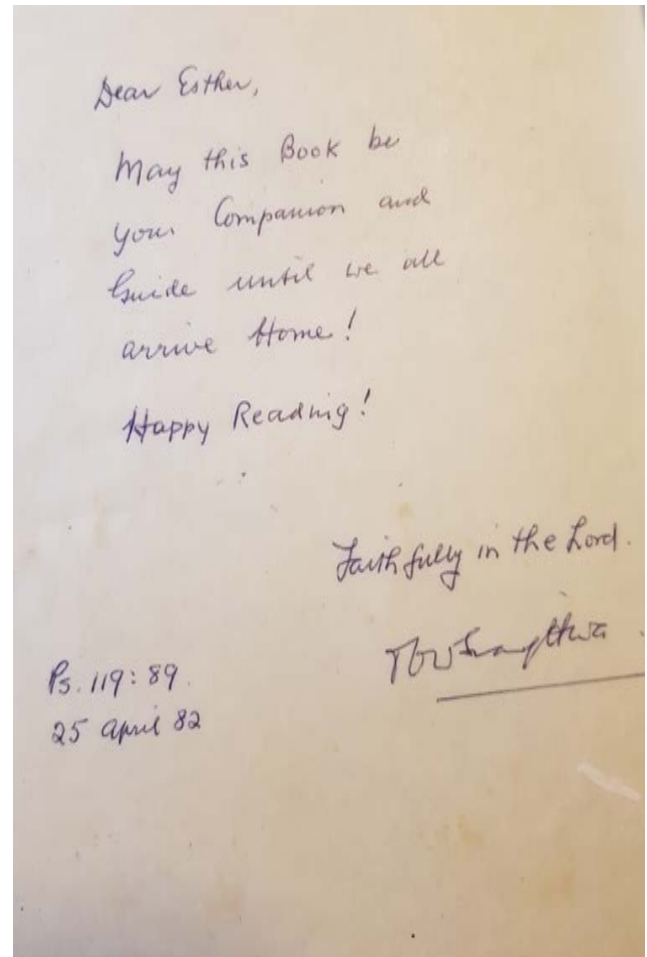 Dear Esther,
May this Book be
your Companion and
Guide until we all
arrive Home!
Happy Reading!
Faithfully in the Lord.
Ps. 119:89.
25 April 82